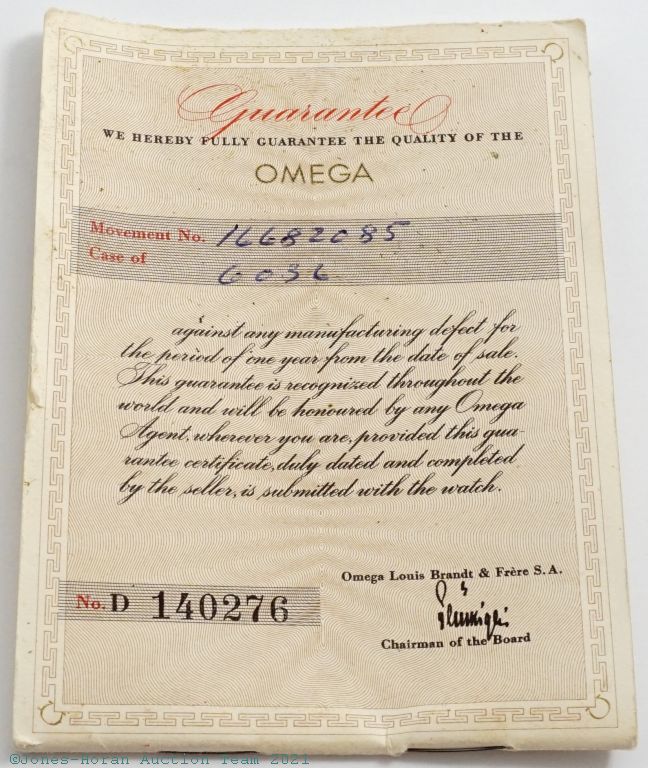 Guarantee
WE HEREBY FULLY GUARANTEE THE QUALITY OF THE
OMEGA
Movement No. 16682085
Case of
against any manufacturing defect for
the period of one year from the date of sale.
This guarantee is recognized throughout the
world and will be honoured by any Omega
Agent, wherever you are, provided this gua-
rantee certificate, duly dated and completed
by the seller, is submitted with the watch.
Omega Louis Brandt & Frère S.A.
No. D 140276
Chairman of the Board
©Jones-Horan Auction Team 2021